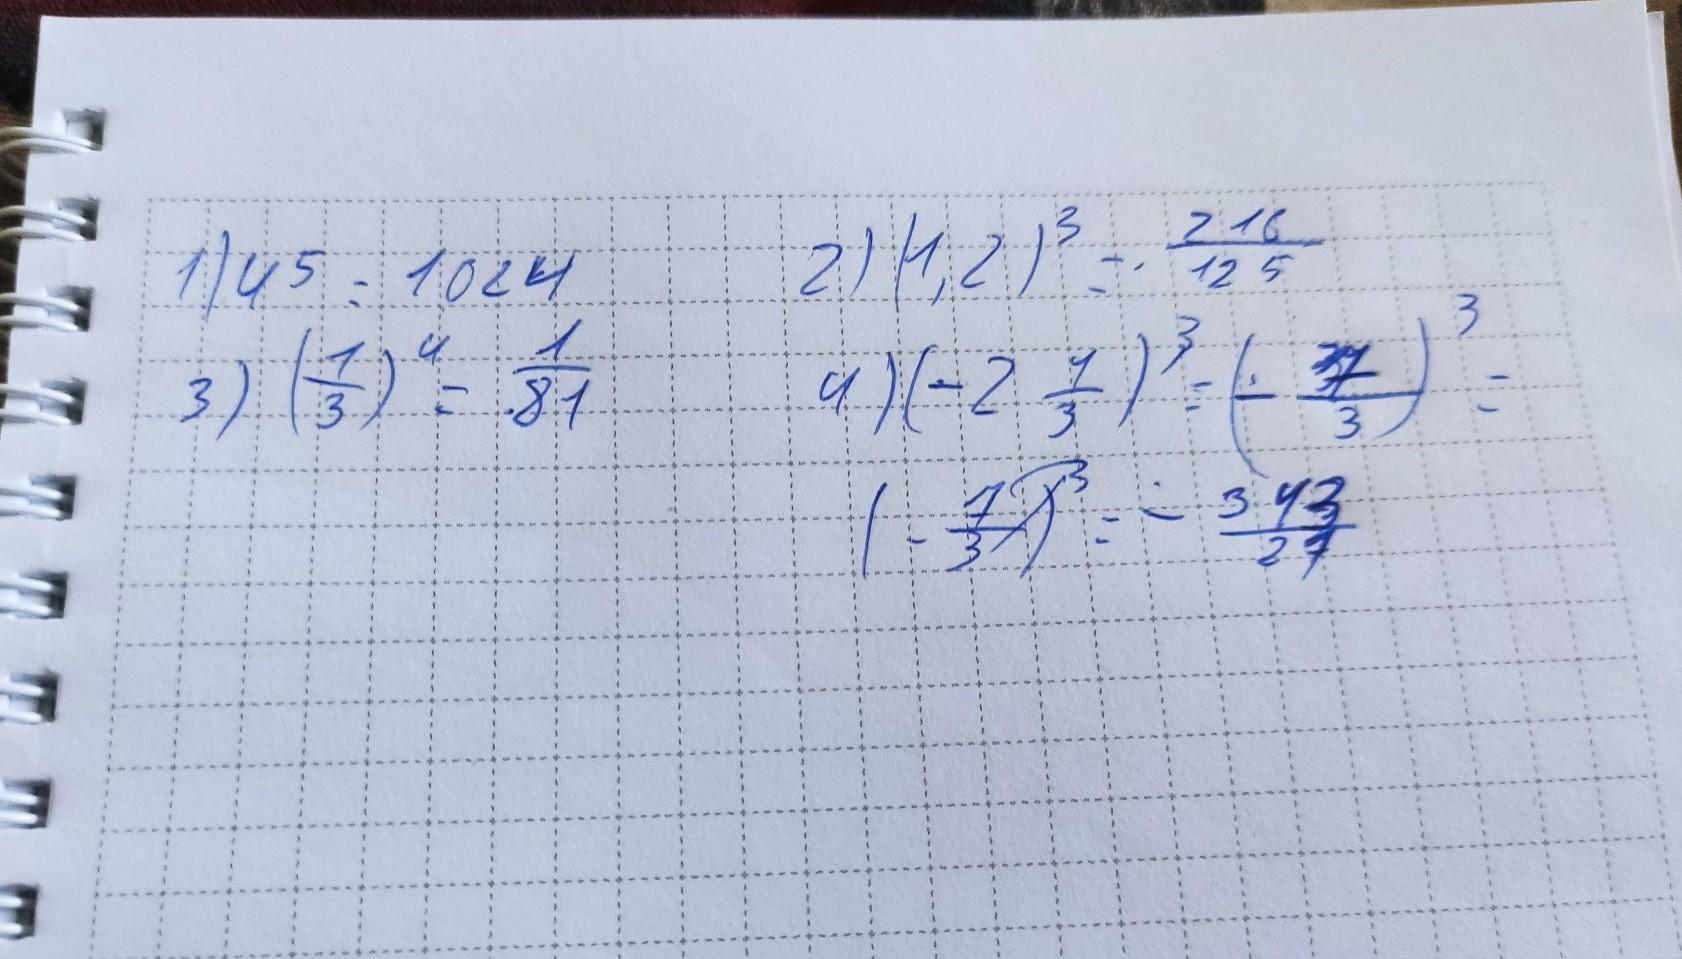 1) 4⁵ = 1024
2) (1,2)³ = 216/125
3) (1/3)⁴ = 1/81
4) (-2 1/3)³ = (- 7/3)³ =
(- 7/3)³ = - 343/27